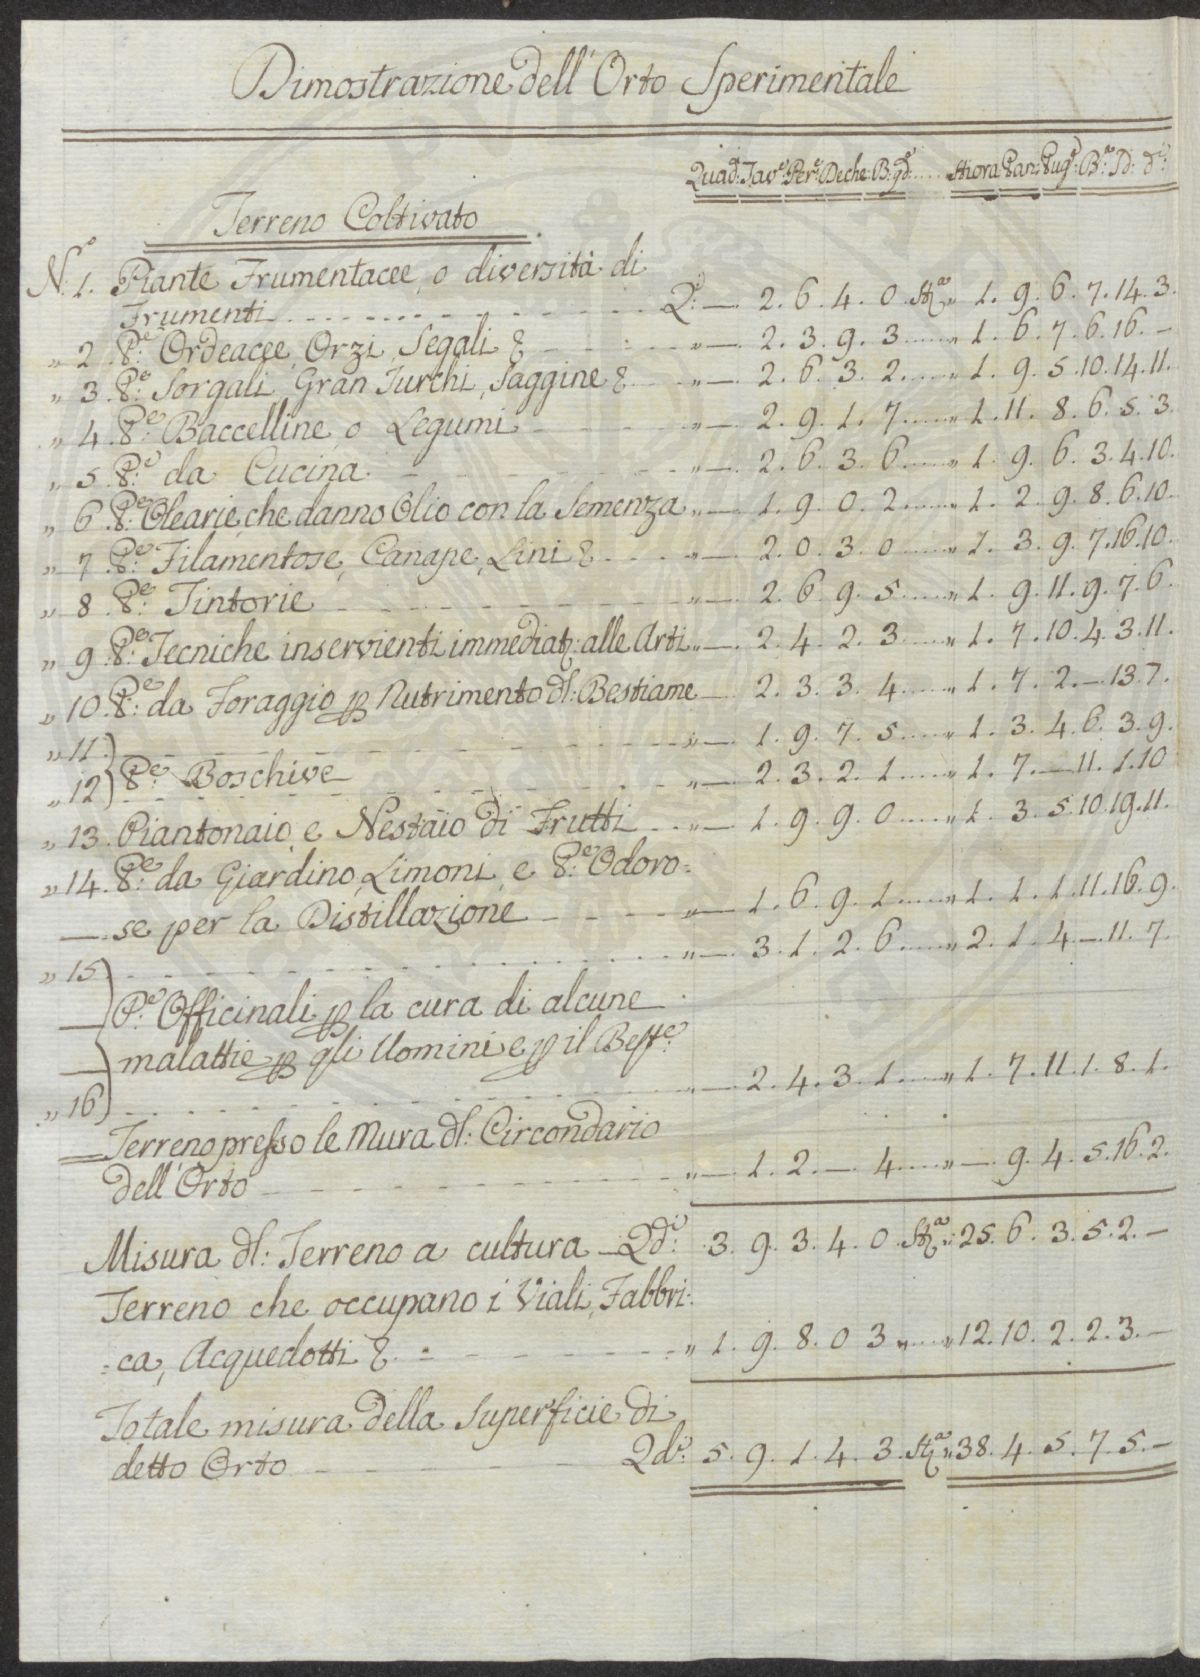 Dimostrazione dell' Orto Sperimentale
Quad: Tav: Per: Deche B: qd: ..... Stiora Pan: Pug: B: D: d:
Terreno Coltivato
N:o 1. Piante Frumentacee, o diversità di
Frumenti - - - - Qd: — 2. 6. 4. 0 Sta „ 1. 9. 6. 7. 14. 3.
„ 2. P:e Ordeacee, Orzi, Segali & - - - „ — 2. 3. 9. 3 ..... „ 1. 6. 7. 6. 16. —
„ 3. P:e Sorgali, Gran Turchi, Saggine & „ — 2. 6. 3. 2 ..... „ 1. 9. 5. 10. 14. 11.
„ 4. P:e Baccelline o Legumi - - - „ — 2. 9. 1. 7 ..... „ 1. 11. 8. 6. 5. 3
„ 5. P:e da Cucina - - - „ — 2. 6. 3. 6 ..... „ 1. 9. 6. 3. 4. 10.
„ 6. P:e Olearie, che danno Olio con la Semenza „ — 1. 9. 0. 2 ..... „ 1. 2. 9. 8. 6. 10.
„ 7. P:e Filamentose, Canape, Lini & - - - „ — 2. 0. 3. 0 ..... „ 1. 3. 9. 7. 16. 10.
„ 8. P:e Tintorie - - - „ — 2. 6. 9. 5 ..... „ 1. 9. 11. 9. 7. 6.
„ 9. P:e Tecniche inservienti immediat: alle Arti „ — 2. 4. 2. 3 ..... „ 1. 7. 10. 4. 3. 11.
„ 10. P:e da Foraggio p Nutrimento dl: Bestiame — 2. 3. 3. 4 ..... „ 1. 7. 2. — 13. 7.
„ 11 ) - - - „ — 1. 9. 7. 5 ..... „ 1. 3. 4. 6. 3. 9.
„ 12 ) P:e Boschive - - - „ — 2. 3. 2. 1 ..... „ 1. 7. — 11. 1. 10
„ 13. Piantonaio, e Nestaio di Frutti - - - „ — 1. 9. 9. 0 ..... „ 1. 3. 5. 10. 19. 11.
„ 14. P:e da Giardino, Limoni, e P:e Odoro=
— se per la Distillazione - - - „ — 1. 6. 9. 1 ..... „ 1. 1. 1. 11. 16. 9.
„ 15 - - - „ — 3. 1. 2. 6 ..... „ 2. 1. 4. — 11. 7.
— P:e Officinali p la cura di alcune
— malattie p gli Uomini e p il Best:e
„ 16 ) - - - „ — 2. 4. 3. 1 ..... „ 1. 7. 11. 1. 8. 1.
— Terreno presso le Mura dl: Circondario
dell' Orto - - - „ — 1. 2. — 4 ..... „ — 9. 4. 5. 16. 2.
Misura dl: Terreno a cultura — Qd:i 3. 9. 3. 4. 0 Sta „ 25. 6. 3. 5. 2. —
Terreno che occupano i Viali, Fabbri=
=ca, Acquedotti & - - - „ 1. 9. 8. 0 3 „ ..... „ 12. 10. 2. 2. 3. —
Totale misura della Superficie di
detto Orto - - - Qd:i 5. 9. 1. 4. 3. Sta „ 38. 4. 5. 7. 5. —